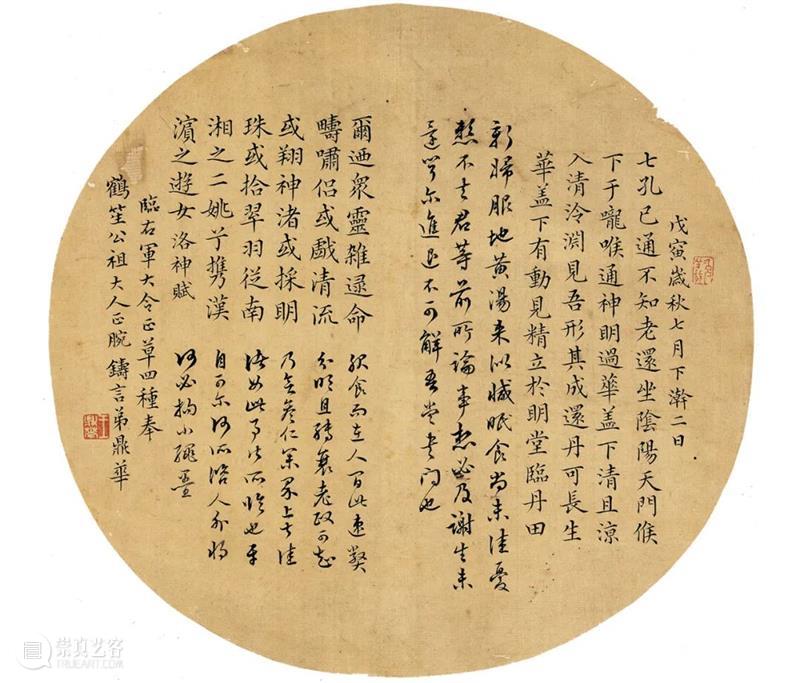 戊寅歲秋七月下澣二日
七孔已通不知老還坐陰陽天門候
下于嚨喉通神明過華盖下清且涼
入清泠淵見吾形其成還丹可長生
華盖下有動見精立於明堂臨丹田
新婦服地黄湯来似憾眠食尚未佳憂
懸不去君等前所論事想必及謝生未
還可尔進退不可解吾當书问也
爾迺衆靈雜遝命
疇嘯侣或戲清流
或翔神渚或採明
珠或拾翠羽從南
湘之二姚兮携漢
濱之遊女洛神賦
服食而在人間此速弊
分明且轉衰老政可知
乃至
仁
上士佳
人
何必拘小
臨右軍大令正草四種奉
鶴笙公祖大人正腕鑄言弟鼎華
崇真艺客
TRUEART.COM